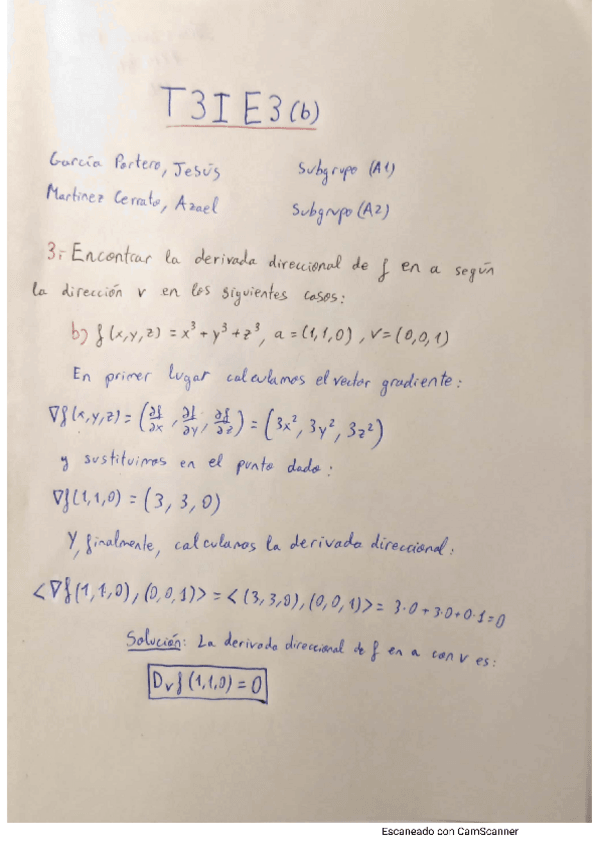 T3I E3 (b)
García Portero, Jesús Subgrupo (A1)
Martinez Cerrato, Azael Subgrupo (A2)
3.- Encontrar la derivada direccional de f en a según
la dirección v en los siguientes casos:
b) f(x,y,z) = x³+y³+z³, a=(1,1,0), v=(0,0,1)
En primer lugar calculamos el vector gradiente:
∇f(x,y,z) = (∂f/∂x, ∂f/∂y, ∂f/∂z) = (3x², 3y², 3z²)
y sustituimos en el punto dado:
∇f(1,1,0) = (3,3,0)
Y, finalmente, calculamos la derivada direccional:
<∇f(1,1,0), (0,0,1)> = <(3,3,0), (0,0,1)> = 3·0+3·0+0·1=0
Solución: La derivada direccional de f en a con v es:
Dᵥf(1,1,0) = 0
Escaneado con CamScanner